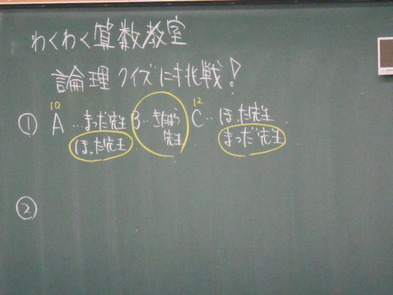 わくわく算数教室
論理クイズに挑戦!
10 12
① A…まつだ先生 B… C…ほった先生
ほった先生 先生 まつだ先生
②